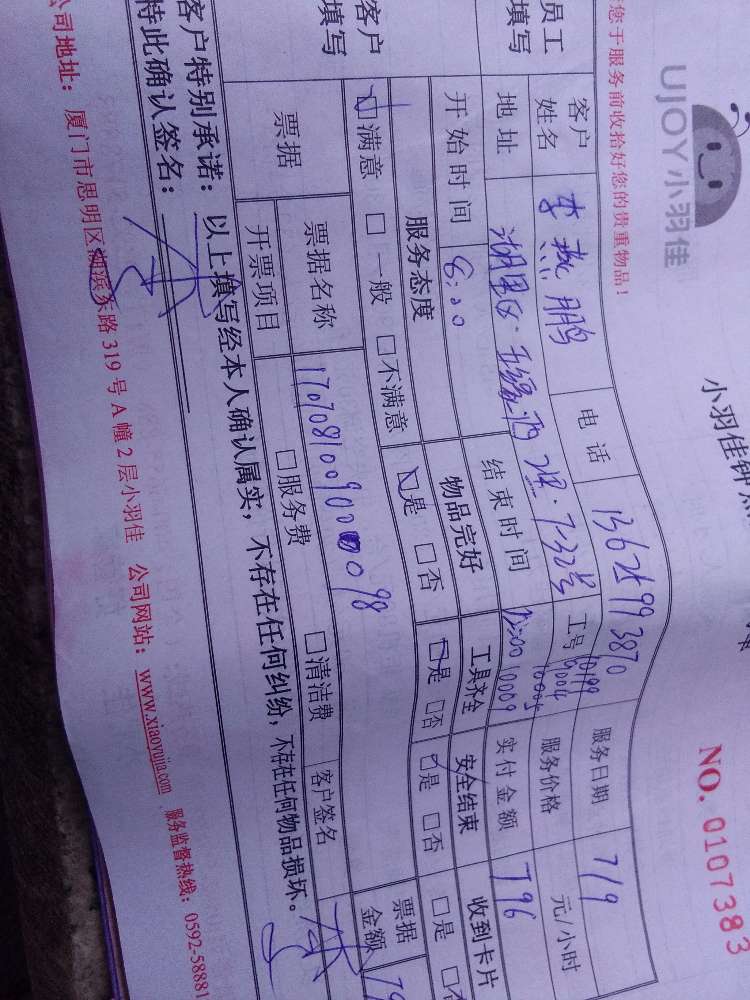 UJOY小羽佳
小羽佳钟点
NO. 0107383
您于服务前收拾好您的贵重物品！
员工填写
客户姓名
李燕鹏
电话
13625993870
服务日期
7/9
地址
工号
10199
10005
10009
服务价格
元/小时
开始时间
8:00
结束时间
实付金额
796
客户填写
服务态度
物品完好
工具齐全
安全结束
收到卡片
满意 一般 不满意
是 否
是 否
是 否
是 否
票据
票据名称
票据金额
开票项目
服务费
清洁费
客户签名
客户特别承诺：以上填写经本人确认属实，不存在任何纠纷，不存在任何物品损坏。
特此确认签名：
公司地址：厦门市思明区湖滨东路319号A幢2层小羽佳 公司网站：www.xiaoyujia.com 服务监督热线：0592-58881